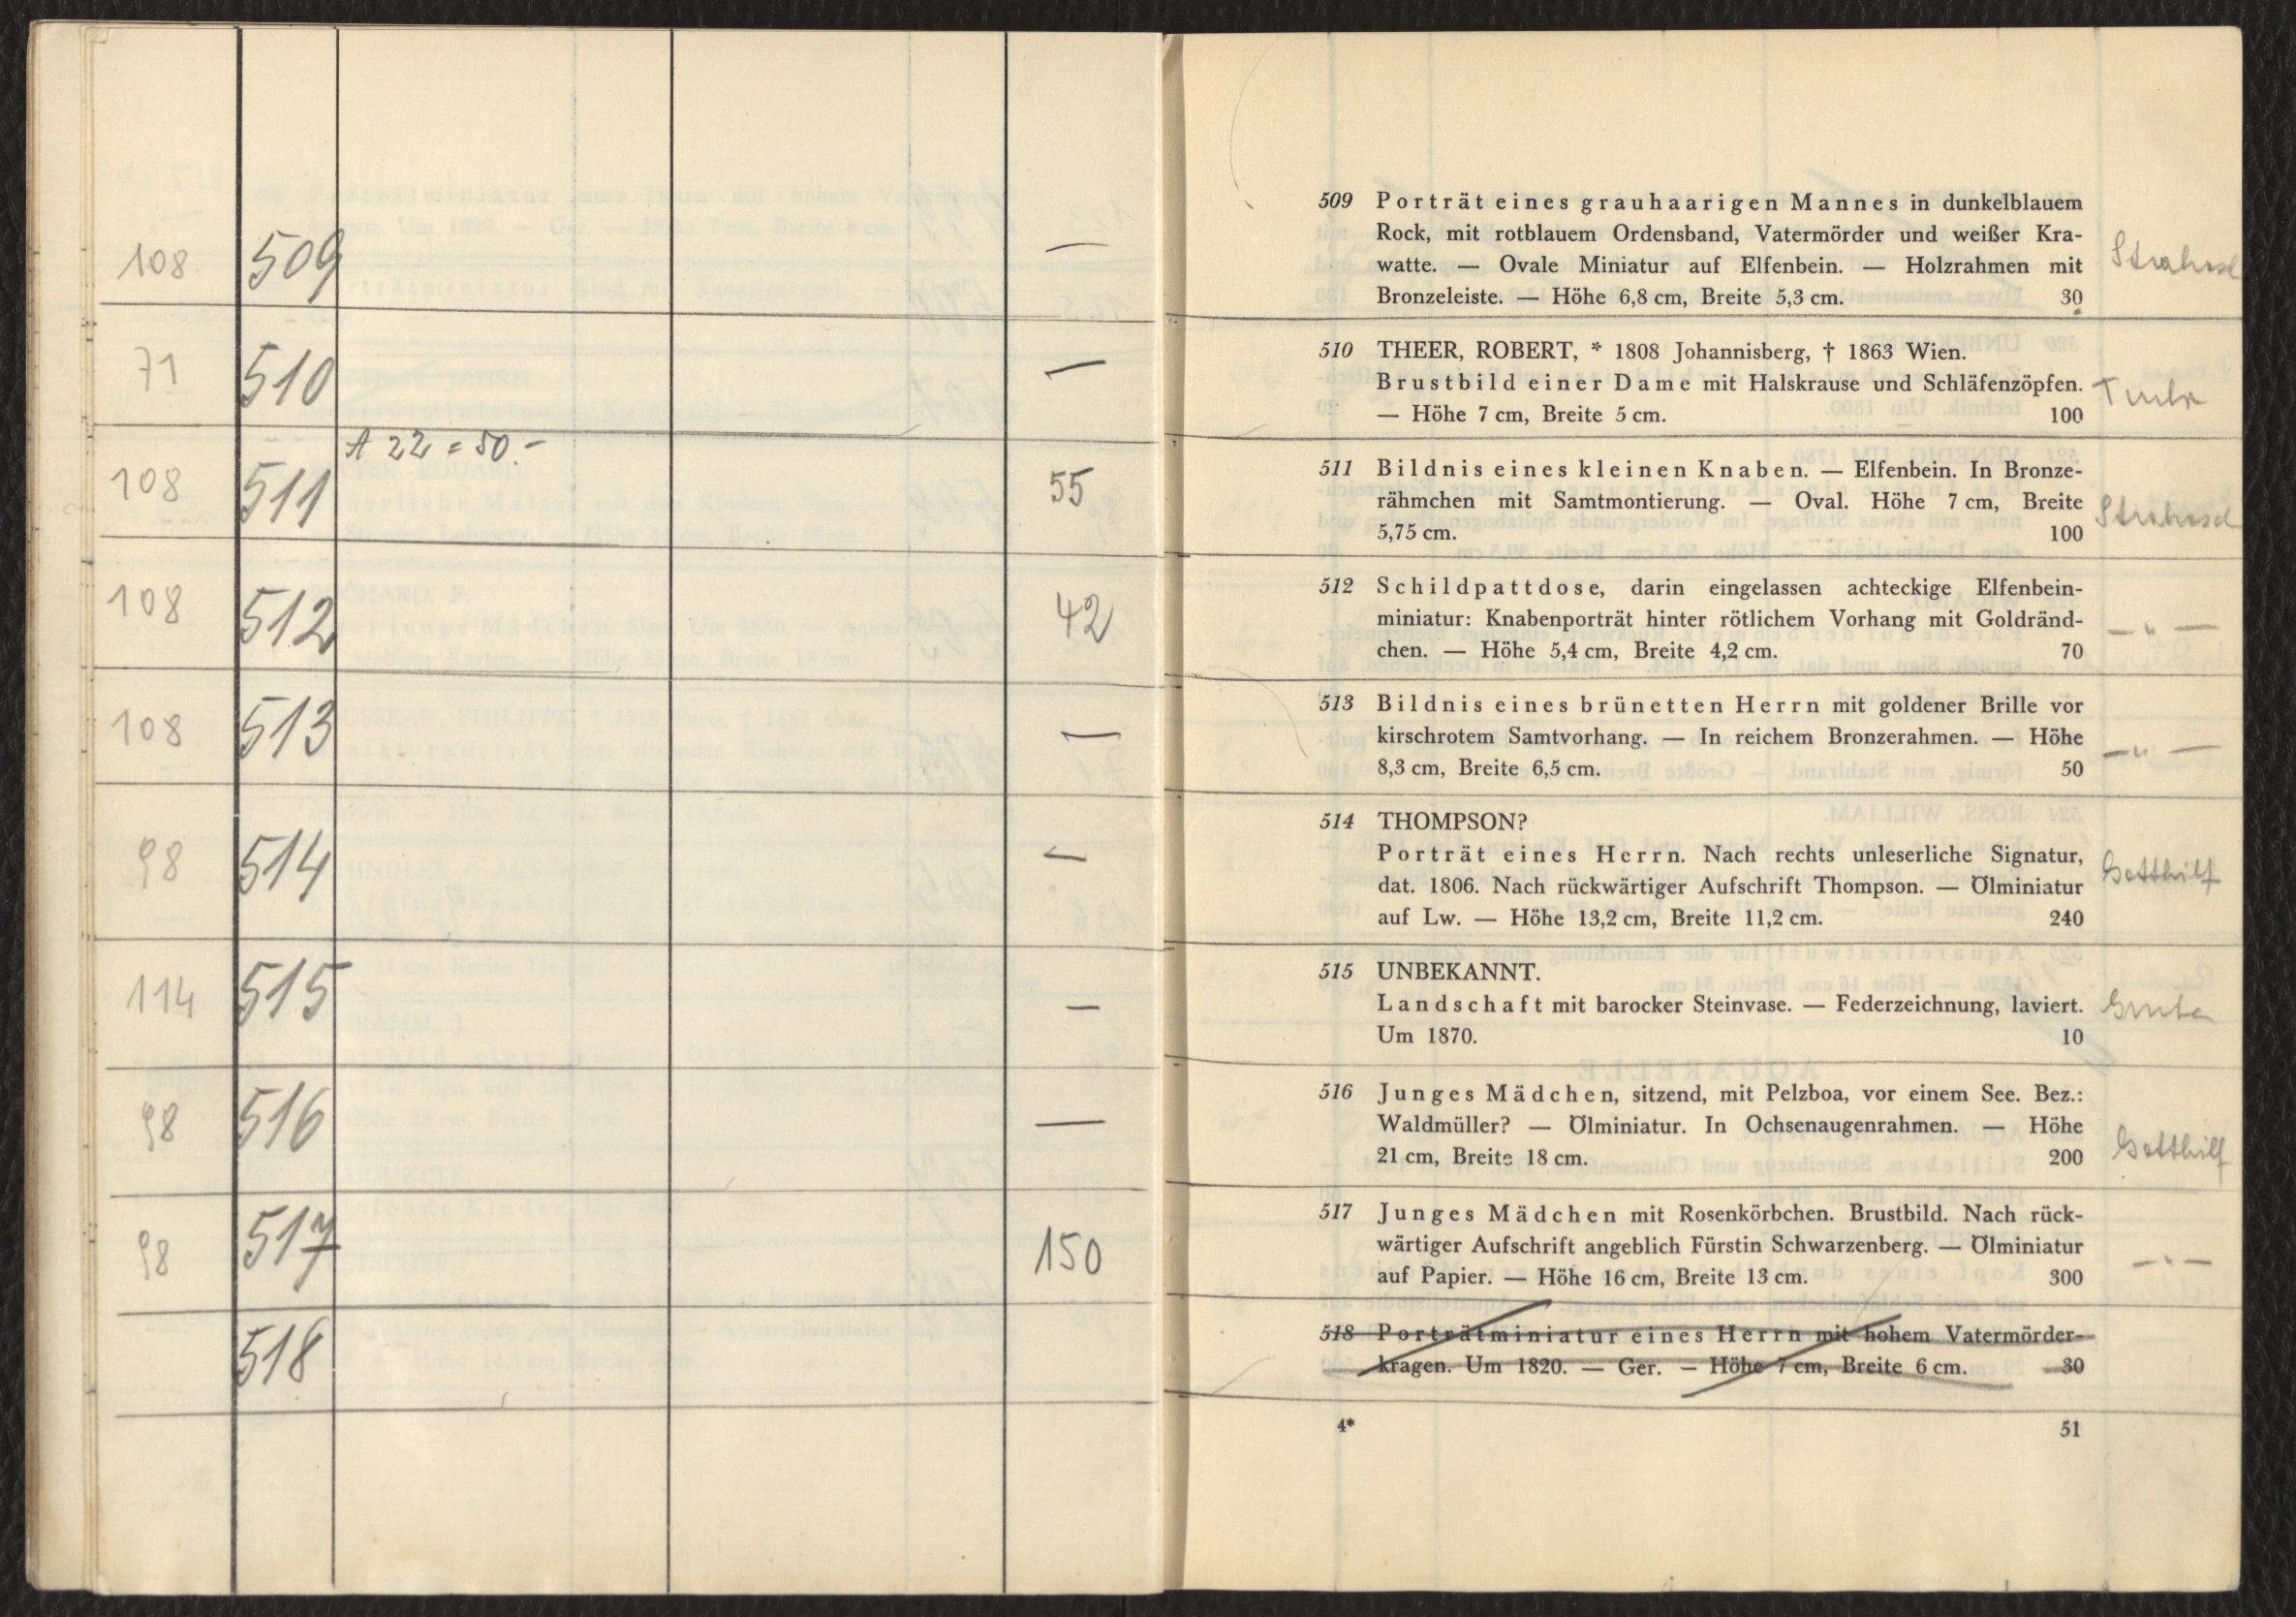 108 509 —
71 510 —
A 22 = 50.-
108 511 55
108 512 42
108 513 —
98 514 —
114 515 —
98 516 —
98 517 150
518
509 Porträt eines grauhaarigen Mannes in dunkelblauem
Rock, mit rotblauem Ordensband, Vatermörder und weißer Kra-
watte. — Ovale Miniatur auf Elfenbein. — Holzrahmen mit
Bronzeleiste. — Höhe 6,8 cm, Breite 5,3 cm. 30
510 THEER, ROBERT, * 1808 Johannisberg, † 1863 Wien.
Brustbild einer Dame mit Halskrause und Schläfenzöpfen.
— Höhe 7 cm, Breite 5 cm. 100
511 Bildnis eines kleinen Knaben. — Elfenbein. In Bronze-
rähmchen mit Samtmontierung. — Oval. Höhe 7 cm, Breite
5,75 cm. 100
512 Schildpattdose, darin eingelassen achteckige Elfenbein-
miniatur: Knabenporträt hinter rötlichem Vorhang mit Goldränd-
chen. — Höhe 5,4 cm, Breite 4,2 cm. 70
— " —
513 Bildnis eines brünetten Herrn mit goldener Brille vor
kirschrotem Samtvorhang. — In reichem Bronzerahmen. — Höhe
8,3 cm, Breite 6,5 cm. 50
— " —
514 THOMPSON?
Porträt eines Herrn. Nach rechts unleserliche Signatur,
dat. 1806. Nach rückwärtiger Aufschrift Thompson. — Ölminiatur
auf Lw. — Höhe 13,2 cm, Breite 11,2 cm. 240
Gotthilf
515 UNBEKANNT.
Landschaft mit barocker Steinvase. — Federzeichnung, laviert.
Um 1870. 10
516 Junges Mädchen, sitzend, mit Pelzboa, vor einem See. Bez.:
Waldmüller? — Ölminiatur. In Ochsenaugenrahmen. — Höhe
21 cm, Breite 18 cm. 200
Gotthilf
517 Junges Mädchen mit Rosenkörbchen. Brustbild. Nach rück-
wärtiger Aufschrift angeblich Fürstin Schwarzenberg. — Ölminiatur
auf Papier. — Höhe 16 cm, Breite 13 cm. 300
— " —
518 Porträtminiatur eines Herrn mit hohem Vatermörder-
kragen. Um 1820. — Ger. — Höhe 7 cm, Breite 6 cm. 30
4* 51